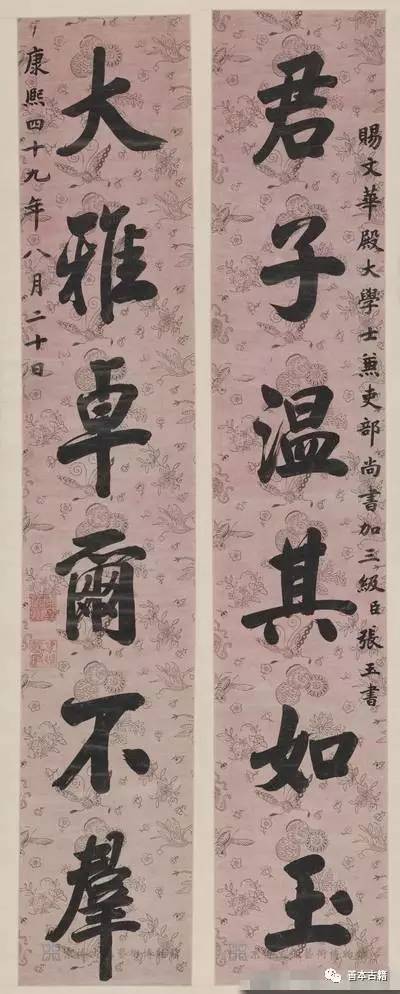 賜文華殿大學士兼吏部尚書加三級臣張玉書
君子温其如玉
大雅卓爾不羣
康熙四十九年八月二十日
善本古籍